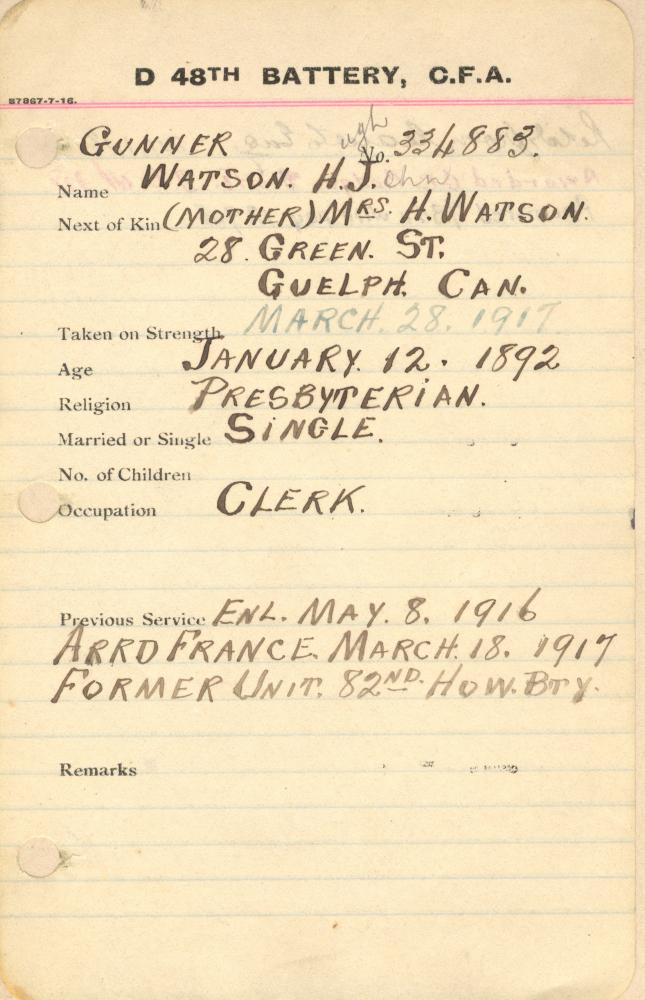 D 48TH BATTERY, C.F.A.
57867-7-16.
GUNNER No. 334883.
ugh
Name WATSON. H. John
Next of Kin (MOTHER) MRS. H. WATSON.
28. GREEN. ST.
GUELPH. CAN.
Taken on Strength MARCH. 28. 1917
Age JANUARY. 12. 1892
Religion PRESBYTERIAN.
Married or Single SINGLE.
No. of Children
Occupation CLERK.
Previous Service ENL. MAY. 8. 1916
ARRD FRANCE. MARCH. 18. 1917
FORMER UNIT. 82ND. HOW. BTY.
Remarks